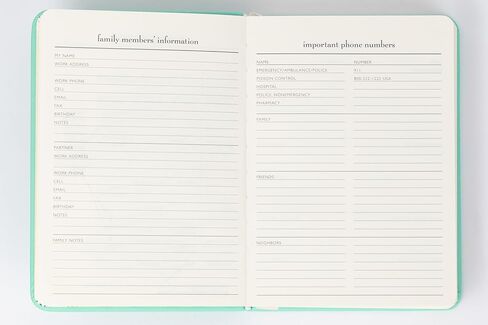 family members' information
MY NAME
WORK ADDRESS
WORK PHONE
CELL
EMAIL
FAX
BIRTHDAY
NOTES
PARTNER
WORK ADDRESS
WORK PHONE
CELL
EMAIL
FAX
BIRTHDAY
NOTES
FAMILY NOTES
important phone numbers
NAME NUMBER
EMERGENCY/AMBULANCE/POLICE 911
POISON CONTROL 800-222-1222 USA
HOSPITAL
POLICE NONEMERGENCY
PHARMACY
FAMILY
FRIENDS
NEIGHBORS